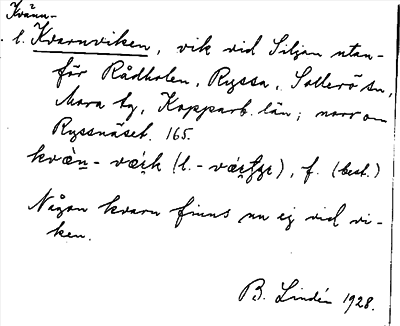 Kvänn-
l. Kvarnviken, vik vid Siljan utan-
för Rådholen, Ryssa, Sollerö sn,
Mora tg, Kopparb. län; norr om
Ryssnäset. 165.
f. (best.)
Någon kvarn finns nu ej vid vi-
ken.
B. Lindén 1928.